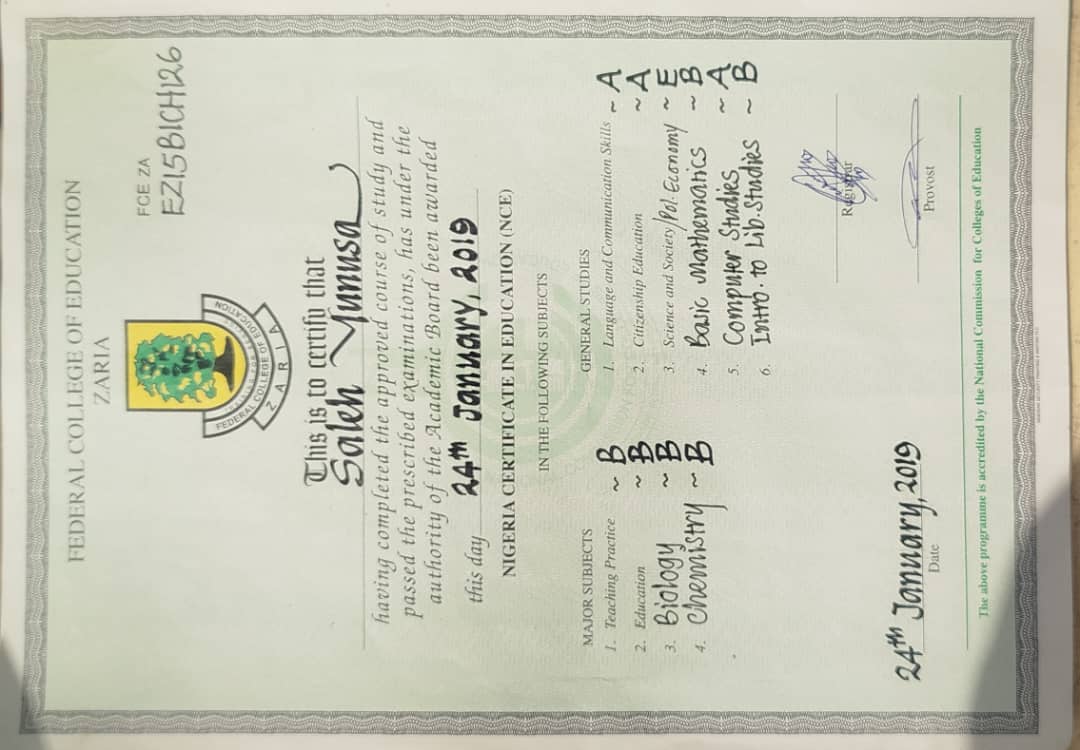 FEDERAL COLLEGE OF EDUCATION
ZARIA
FCE ZA
EZ15BICH126
FEDERAL COLLEGE OF EDUCATION
ZARIA
This is to certify that
Saleh Yunusa
having completed the approved course of study and
passed the prescribed examinations, has under the
authority of the Academic Board been awarded
this day 24th January, 2019
NIGERIA CERTIFICATE IN EDUCATION (NCE)
IN THE FOLLOWING SUBJECTS
MAJOR SUBJECTS
1. Teaching Practice ~ B
2. Education ~ B
3. Biology ~ B
4. Chemistry ~ B
GENERAL STUDIES
1. Language and Communication Skills ~ A
2. Citizenship Education ~ A
3. Science and Society/Pol. Economy ~ E
4. Basic Mathematics ~ B
5. Computer Studies ~ A
6. Intro. to Lib. Studies ~ B
Registrar
24th January, 2019
Date
Provost
The above programme is accredited by the National Commission for Colleges of Education